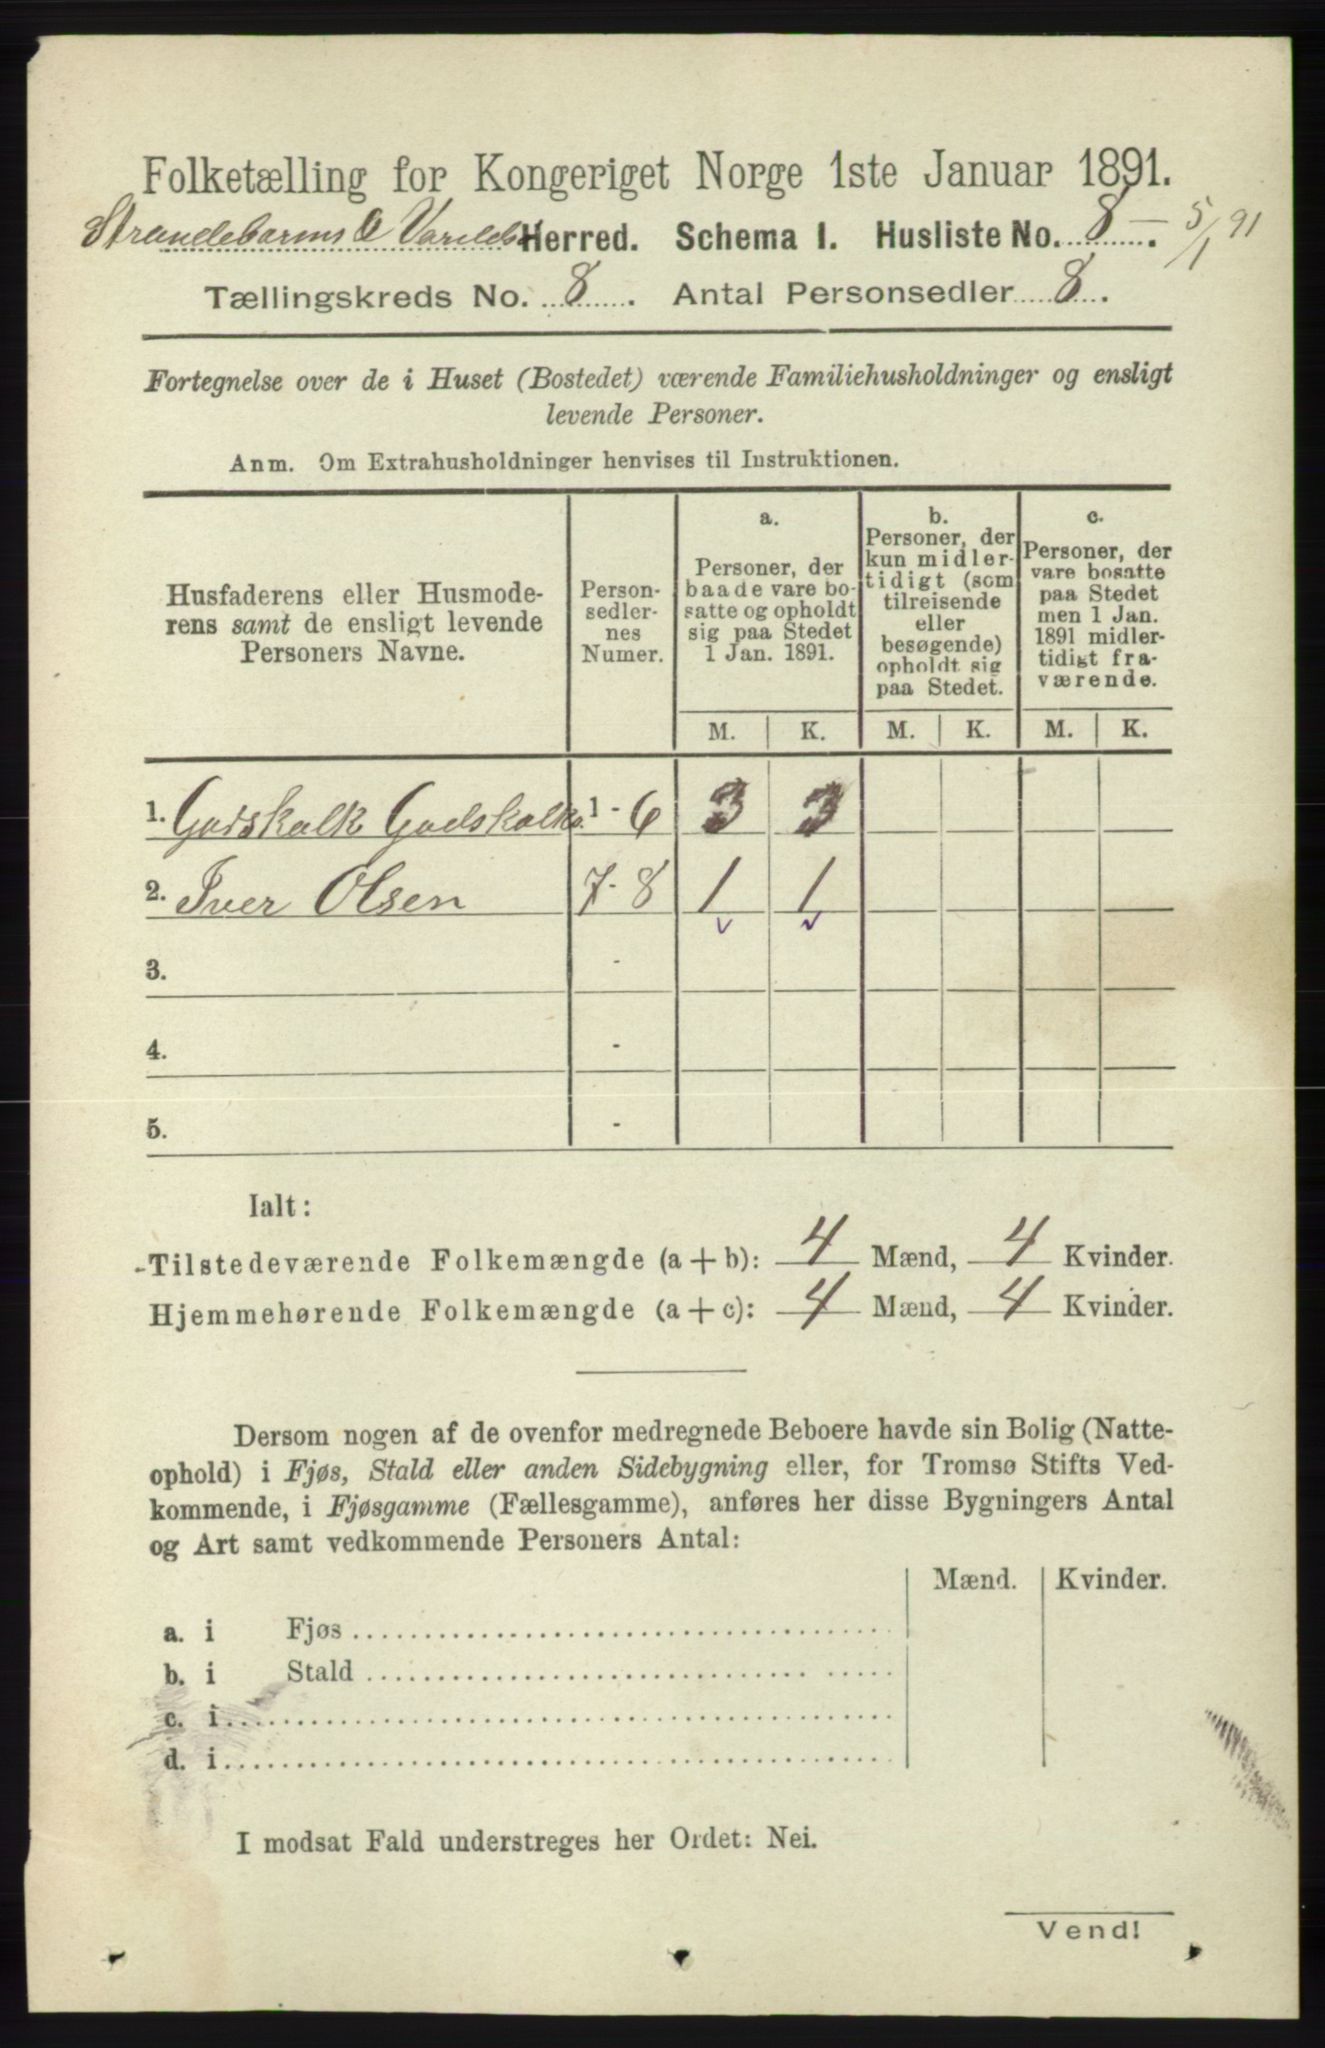 Folketælling for Kongeriget Norge 1ste Januar 1891.
Strandebarms & Varalds Herred. Schema I. Husliste No. 8 — . 5/1 91
Tællingskreds No. 8. Antal Personsedler 8.
Fortegnelse over de i Huset (Bostedet) værende Familiehusholdninger og ensligt
levende Personer.
Anm. Om Extrahusholdninger henvises til Instruktionen.
Husfaderens eller Husmode-
rens samt de ensligt levende
Personers Navne.
Person-
sedler-
nes
Numer.
a.
Personer, der
baade vare bo-
satte og opholdt
sig paa Stedet
1 Jan. 1891.
b.
Personer, der
kun midler-
tidigt (som
tilreisende
eller
besøgende)
opholdt sig
paa Stedet.
c.
Personer, der
vare bosatte
paa Stedet
men 1 Jan.
1891 midler-
tidigt fra-
værende.
M. K. M. K. M. K.
1. Godskalk Godskalks. 1 - 6 3 3
2. Iver Olsen 7 - 8 1 1
3. -
4. -
5. -
Ialt:
Tilstedeværende Folkemængde (a + b): 4 Mænd, 4 Kvinder.
Hjemmehørende Folkemængde (a + c): 4 Mænd, 4 Kvinder.
Dersom nogen af de ovenfor medregnede Beboere havde sin Bolig (Natte-
ophold) i Fjøs, Stald eller anden Sidebygning eller, for Tromsø Stifts Ved-
kommende, i Fjøsgamme (Fællesgamme), anføres her disse Bygningers Antal
og Art samt vedkommende Personers Antal:
Mænd. Kvinder.
a. i Fjøs
b. i Stald
c. i
d. i
I modsat Fald understreges her Ordet: Nei.
Vend!